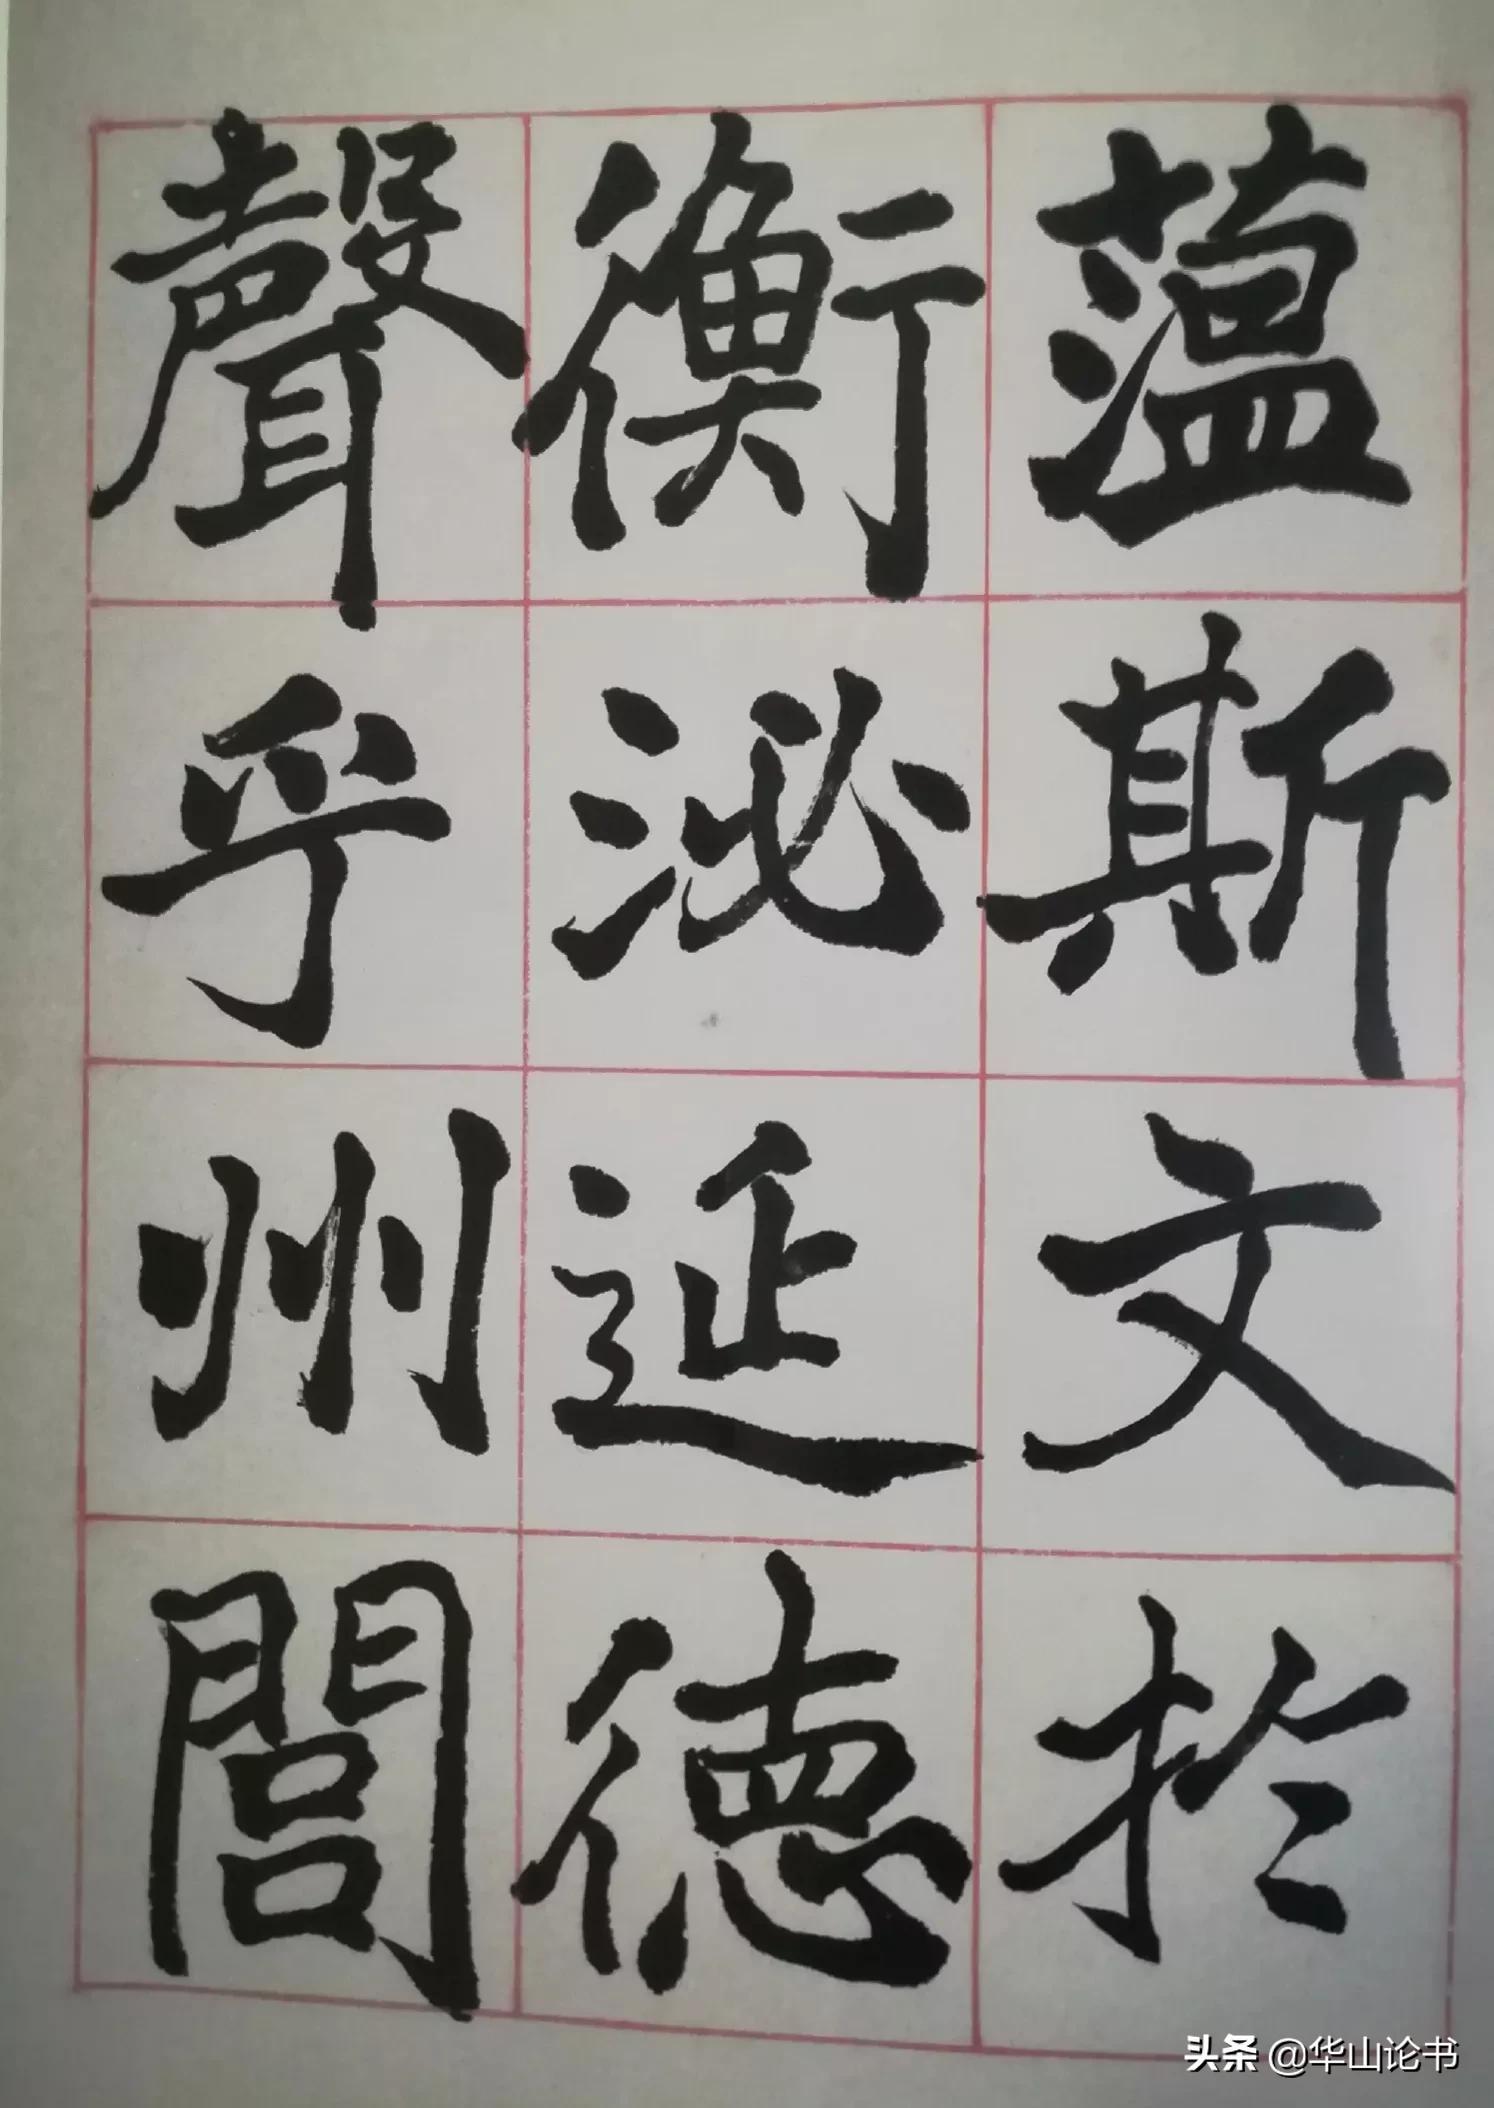 蕰斯文於
衡泌延德
聲乎州閭
头条 @华山论书